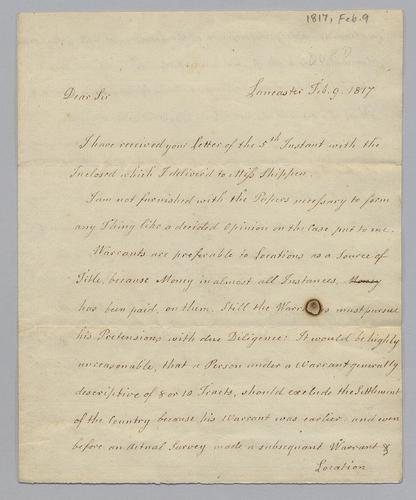 1817, Feb. 9
Lancaster Feb. 9. 1817
Dear Sir
I have received your Letter of the 5th Instant with the
Inclosed which I delivered to Miss Shippen.
I am not furnished with the Papers necessary to form
any Thing like a decided Opinion on the Case put to me.
Warrants are preferable to Locations as a Source of
Title, because Money in almost all Instances,
has been paid, on them. Still the must pursue
his Pretensions with due Diligence: It would be highly
unreasonable, that a Person under a Warrant generally
descriptive of 8 or 10 Tracts, should exclude the Settlement
of the Country because his Warrant was earlier and even
before an Actual Survey made a subsequant Warrant &
Location